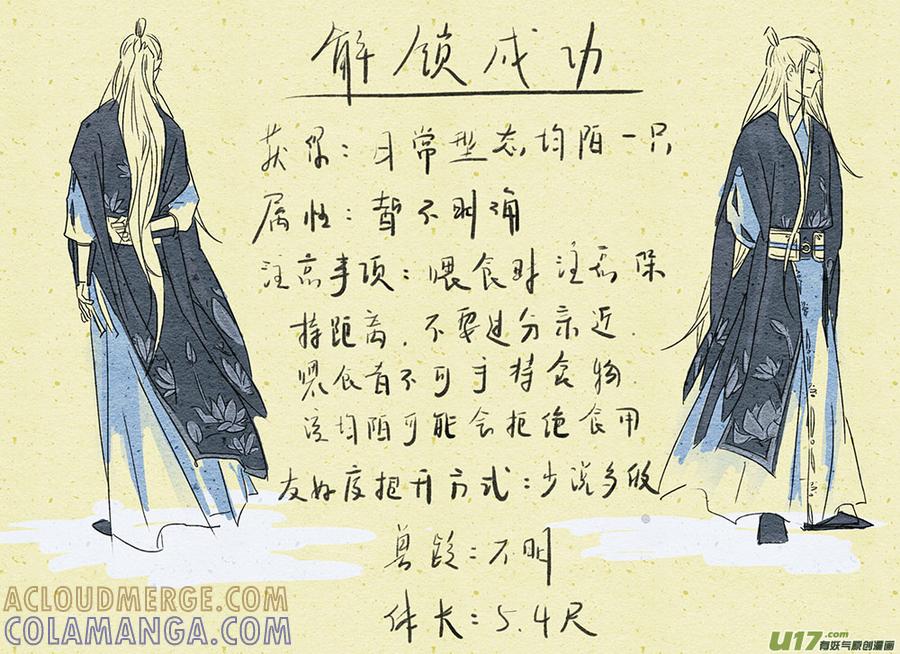 解锁成功
获得：日常型态均陌一只
属性：暂不明确
注意事项：喂食时注意保
持距离，不要过分亲近.
喂食者不可手持食物.
该均陌可能会拒绝食用
友好度提升方式：少说多做
兽龄：不明
体长：5.4尺
ACLOUDMERGE.COM
COLAMANGA.COM
U17.com
有妖气原创漫画